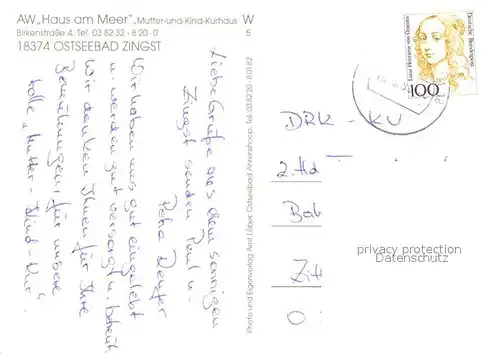 AW „Haus am Meer“, Mutter-und-Kind-Kurhaus W
Birkenstraße 4, Tel. 03 82 32 - 8 20 - 0 5
18374 OSTSEEBAD ZINGST
Liebe Grüße aus dem sonnigen
Zingst senden Paul u.
Petra
Wir haben uns gut eingelebt
u. werden gut versorgt u. betreut.
Wir danken Ihnen für Ihre
Bemühungen, für unsere
tolle „Mutter-Kind-Kur“
Photo und Eigenverlag Arnt Löber, Ostseebad Ahrenshoop, Tel. 03 82 20 - 8 01 82
Deutsche Bundespost
Luise Henriette von Oranien
100
DRK - KU
2. Hd
Bab
Zitt
O
privacy protection
Datenschutz